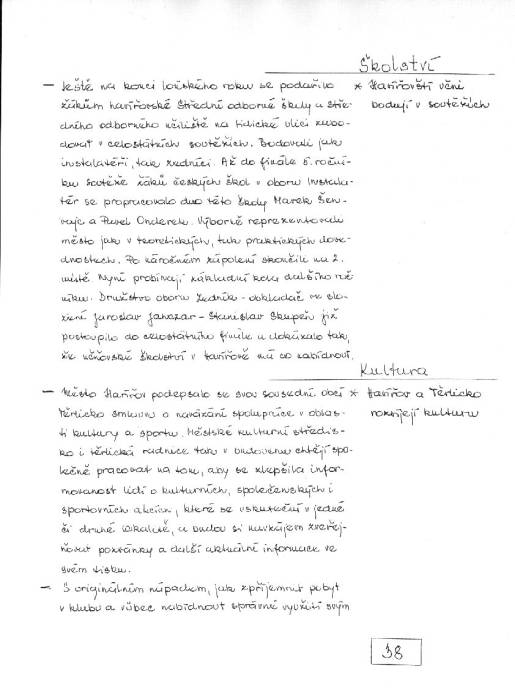 Školství
— Ještě na konci loňského roku se podařilo
žákům havířovské Střední odborné školy a Stře-
dního odborného učiliště na Lidické ulici zabo-
dovat v celostátních soutěžích. Bodovali jak
instalatéři, tak zedníci. Až do finále 5. roční-
ku soutěže žáků českých škol v oboru Instala-
tér se propracovalo duo této školy Marek Šen-
vajc a Pavel Onderek. Výborně reprezentovali
město jak v teoretických, tak praktických dove-
dnostech. Po náročném zápolení skončili na 2.
místě. Nyní probíhají základní kola dalšího roč-
níku. Družstvo oboru Zedník - obkladač ve slo-
žení Jaroslav Janazar - Stanislav Skupeň již
postoupilo do celostátního finále a dokázalo tak,
že učňovské školství v Havířově má co nabídnout.
* Havířovští učni
bodují v soutěžích
Kultura
— Město Havířov podepsalo se svou sousední obcí
Těrlicko smlouvu o navázání spolupráce v oblas-
ti kultury a sportu. Městské kulturní středis-
ko i těrlická radnice tak v budoucnu chtějí spo-
lečně pracovat na tom, aby se zlepšila infor-
movanost lidí o kulturních, společenských i
sportovních akcích, které se uskuteční v jedné
či druhé lokalitě, a budou si navzájem zveřej-
ňovat pozvánky a další aktuální informace ve
svém tisku.
* Havířov a Těrlicko
rozvíjejí kulturu
— S originálním nápadem, jak zpříjemnit pobyt
v klubu a vůbec nabídnout správné využití svým
38